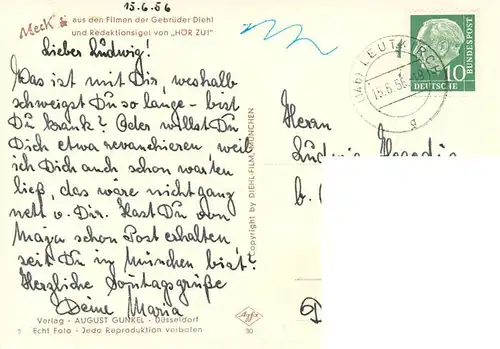 15.6.56
Mecki
aus den Filmen der Gebrüder Diehl
und Redaktionsigel von "HÖR ZU!"
Lieber Ludwig!
Was ist mit Dir, weshalb
schweigst Du so lange - bist
Du krank? Oder willst Du
Dich etwa revanchieren, weil
ich Dich auch schon warten
ließ, das wäre nicht ganz
nett v. Dir. Hast Du von
Maja schon Post erhalten,
seit Du in München bist?
Herzliche Sonntagsgrüße
Deine Maria
Verlag - AUGUST GUNKEL - Düsseldorf
Echt Foto - Jede Reproduktion verboten
30
Agfa
Copyright by DIEHL-FILM, MÜNCHEN
LEUTKIRCH
15.6.56
g
10
DEUTSCHE
BUNDESPOST
Herrn
Ludwig
b.